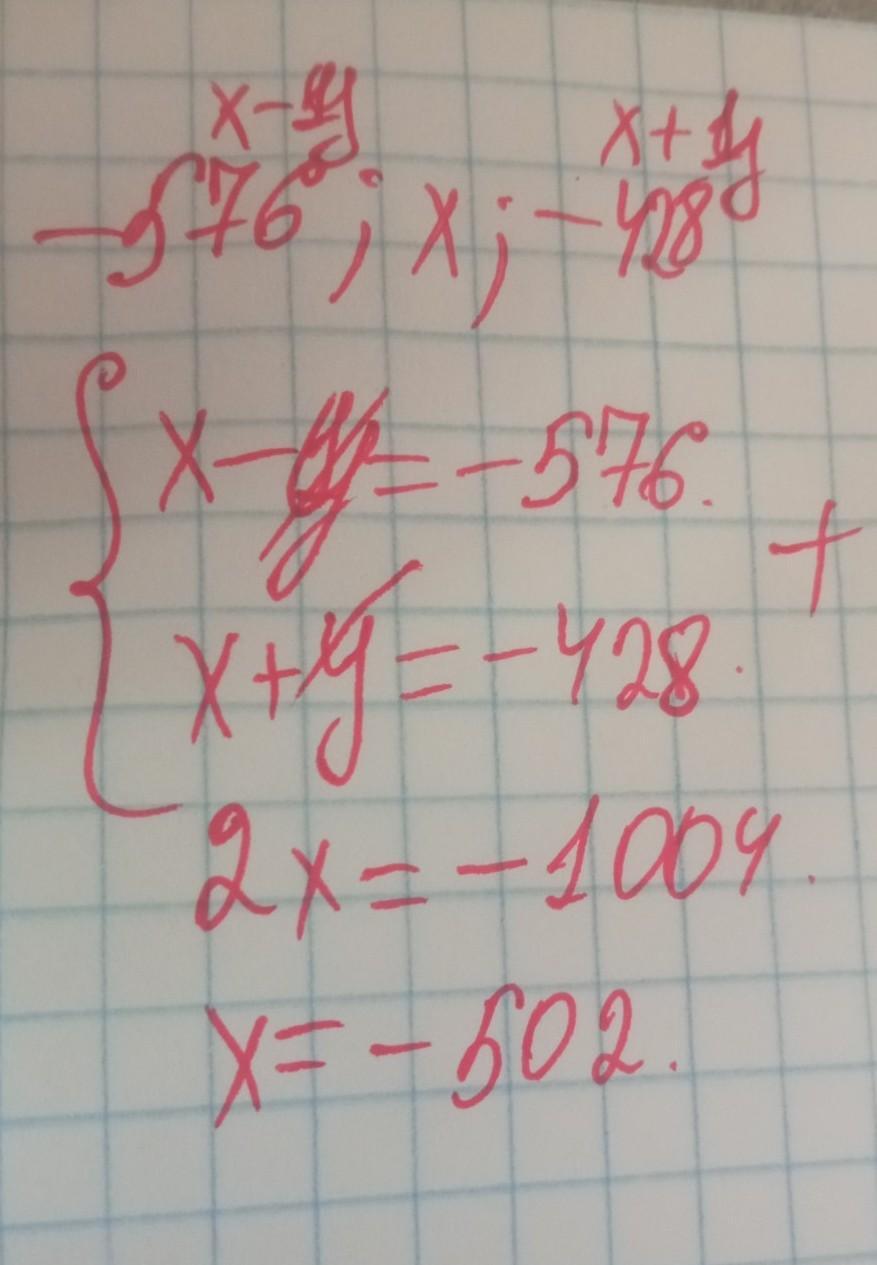 x-y x+y
-576; x; -428
x-y=-576.
+
x+y=-428.
2x=-1004.
x=-502.